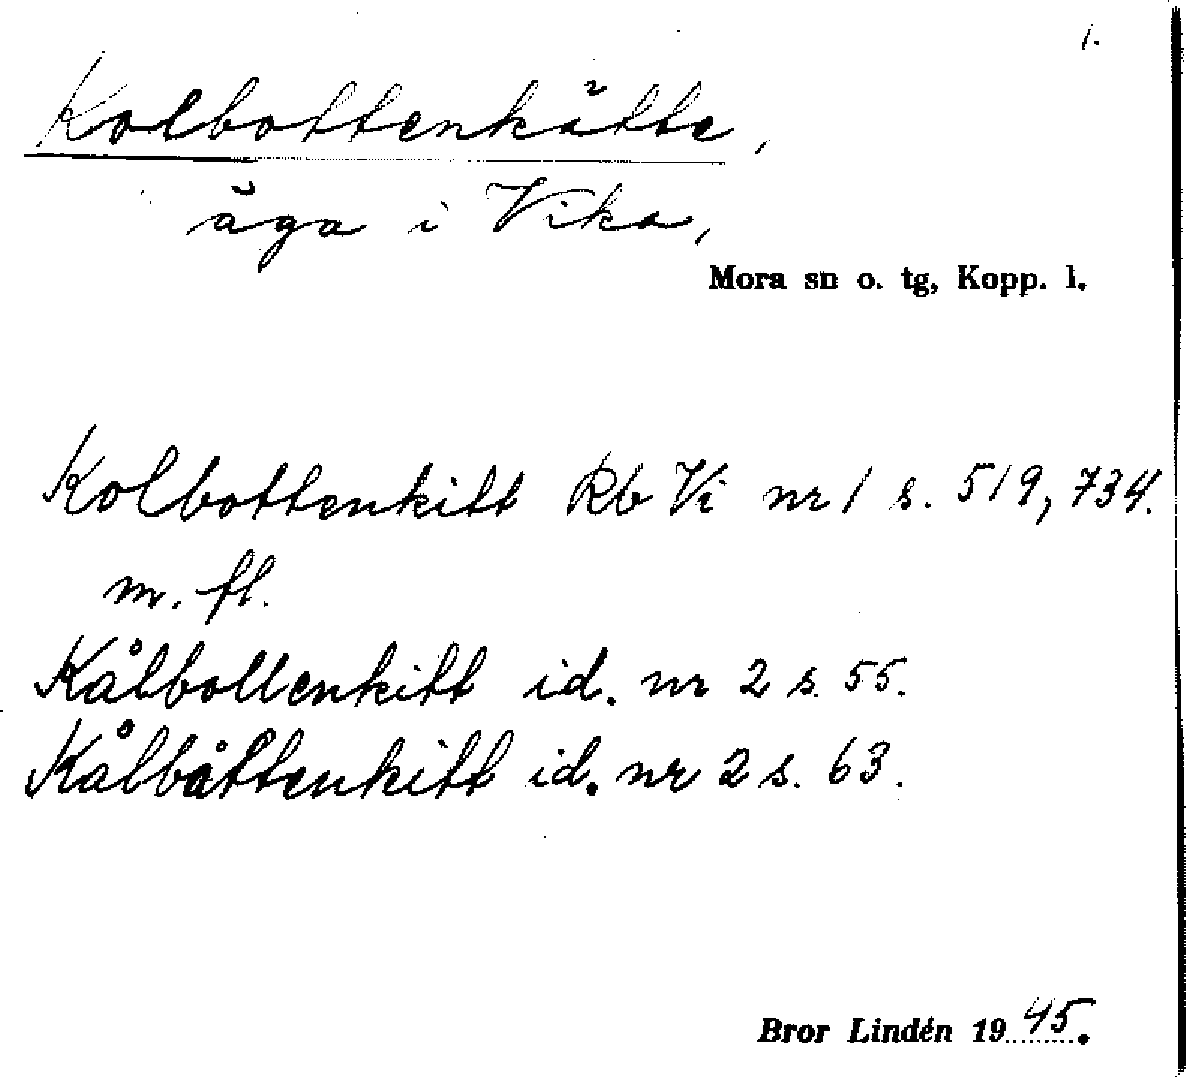 1.
Kolbottenkätte,
äga i Vika,
Mora sn o. tg, Kopp. l.
Kolbottenkitt Rb Vi nr 1 s. 519, 734.
m. fl.
Kålbottenkitt id. nr 2 s. 55.
Kålbåttenkitt id. nr 2 s. 63.
Bror Lindén 1945.